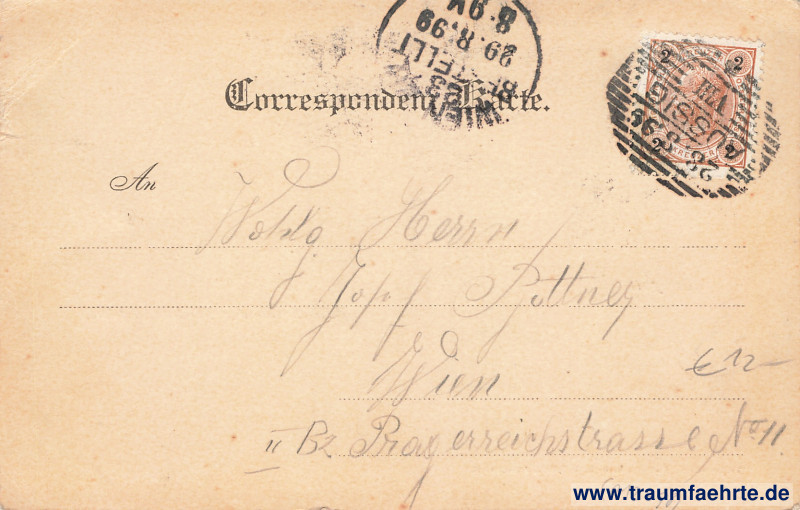 8.9V
29.8.99
BESTELLT
WIEN
2
2
Correspondenz-Karte.
AUSSIG
28 8 99
2
An
Wohlg Herrn
Josef
Wien
€ 12-
II Bz Pragerreichstrasse No 11
www.traumfaehrte.de